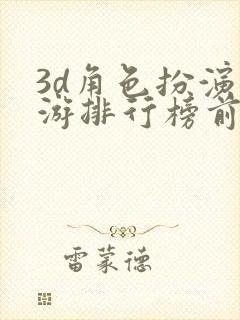 3d角色扮演
游排行榜前
雷蒙德